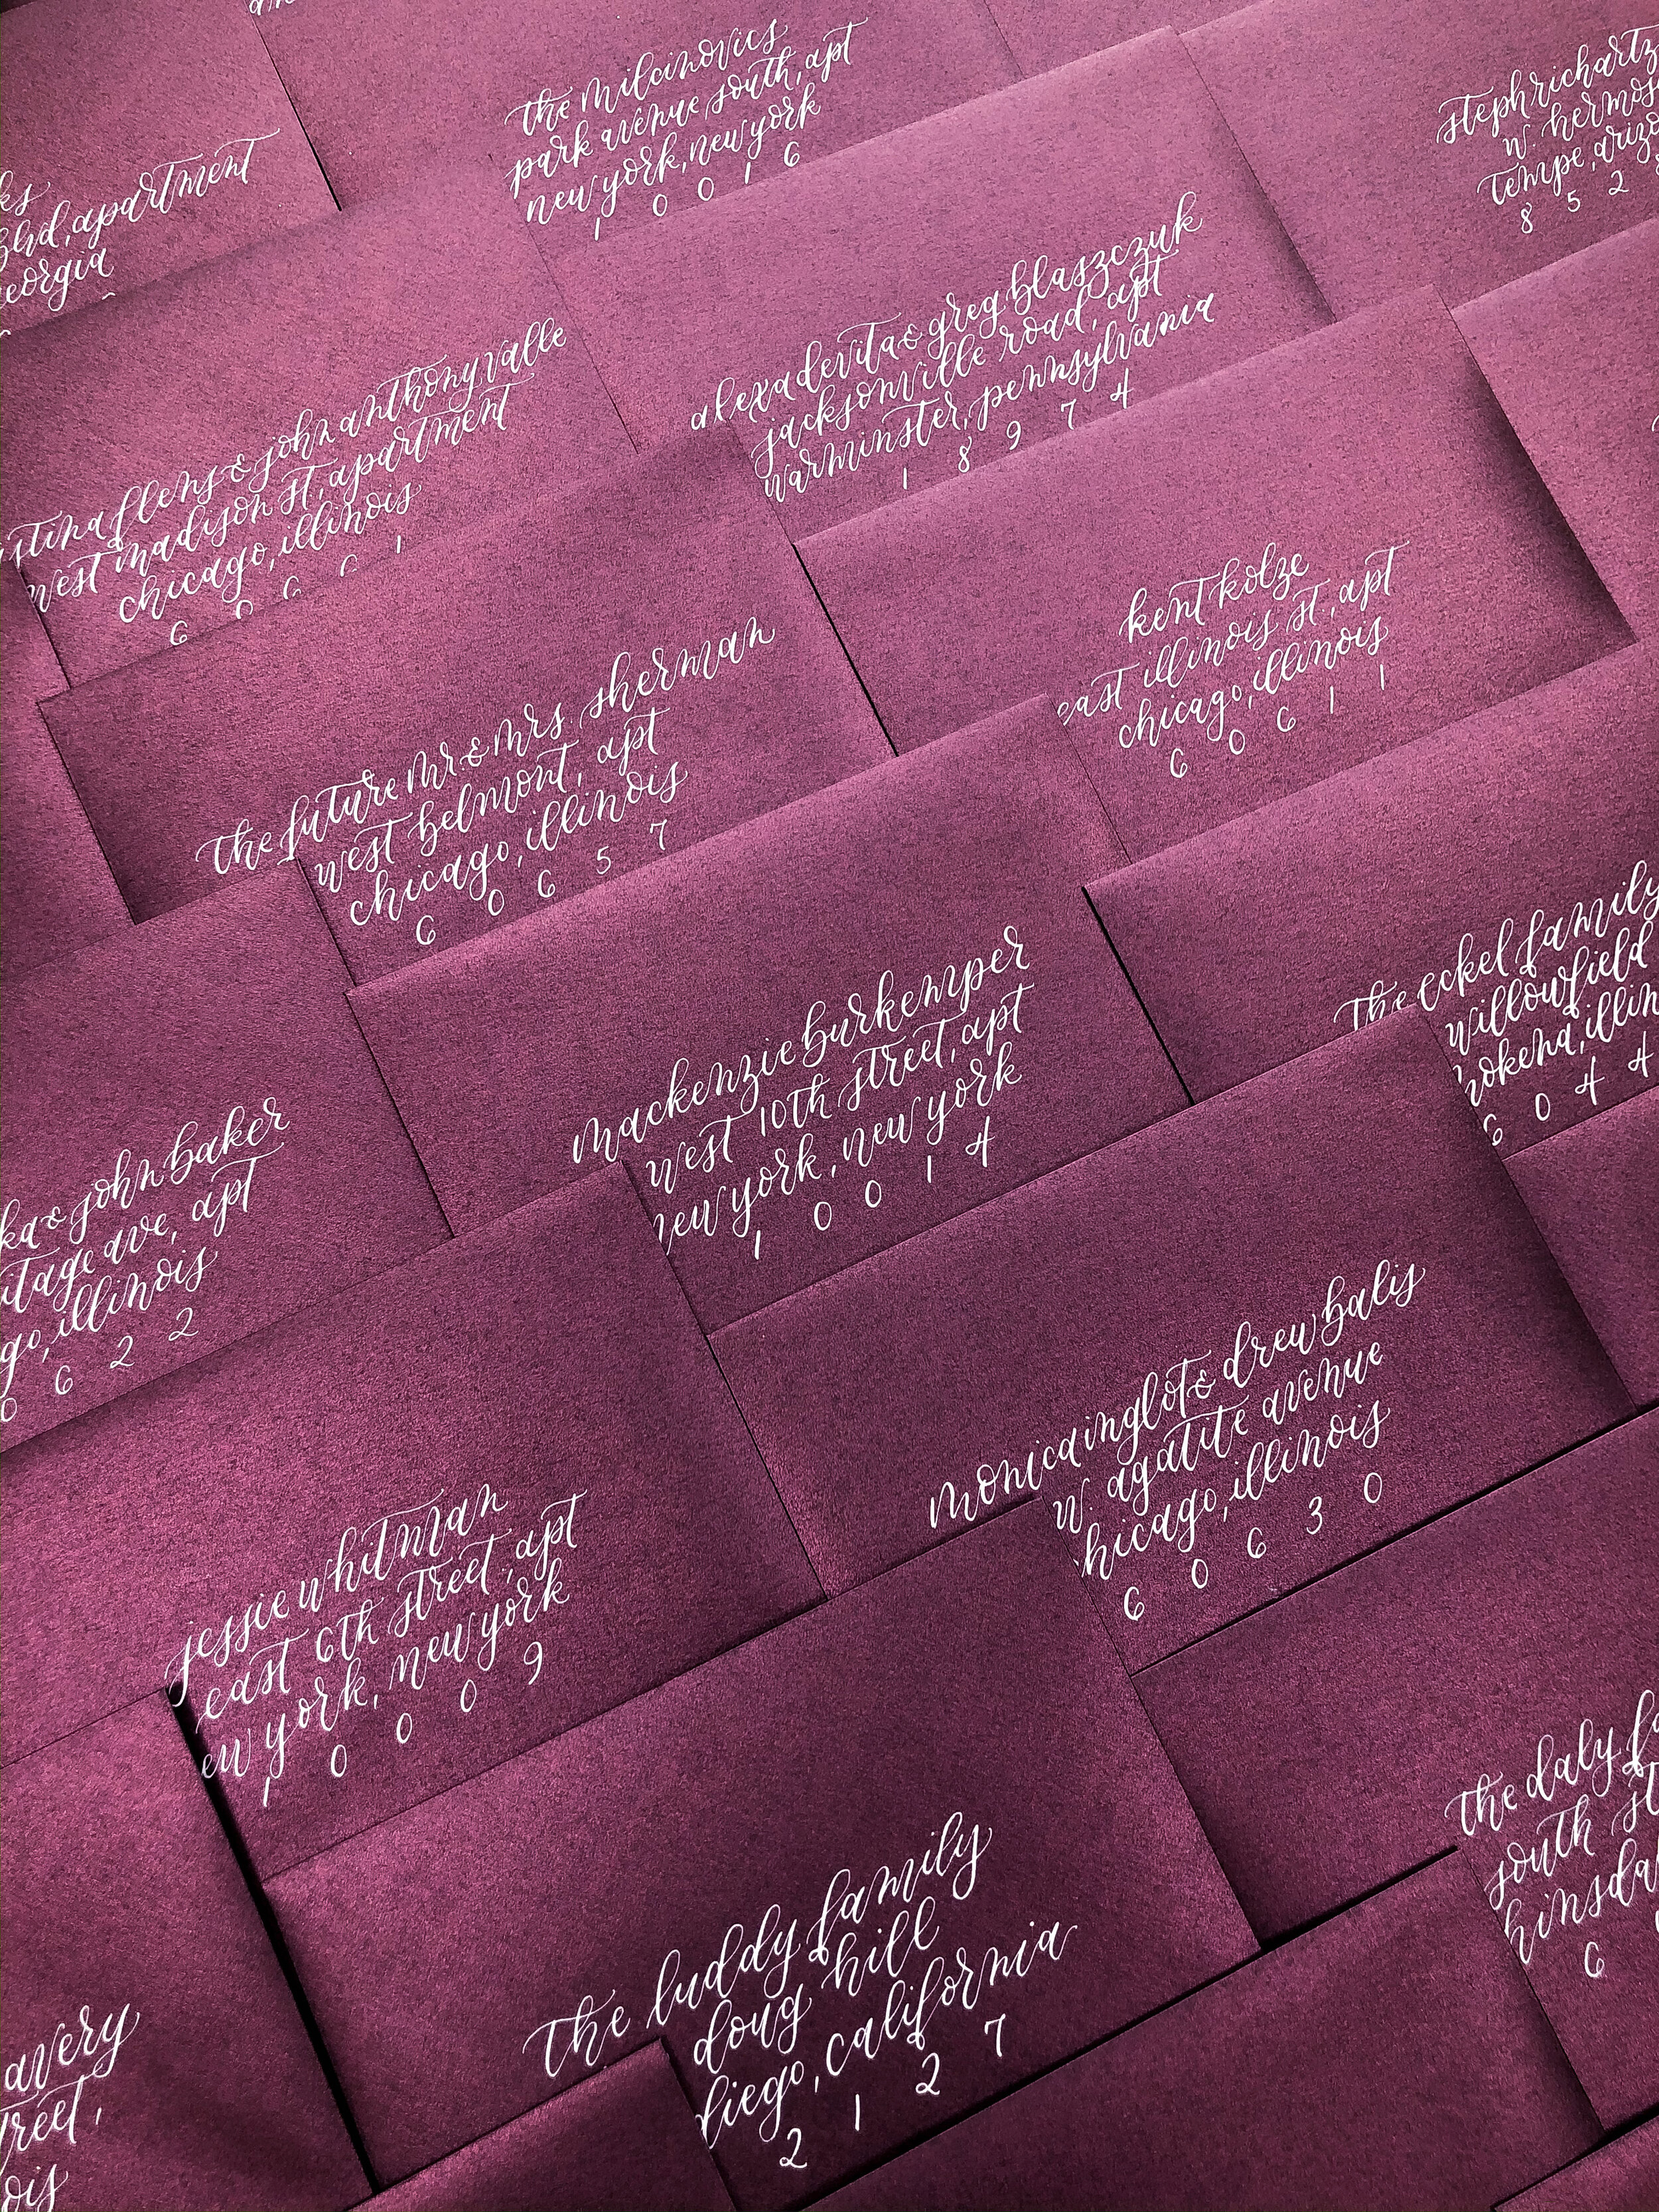 the milcinovics
park avenue south, apt
new york, new york
1 0 0 1 6
steph richartz
w. hermos
tempe, arizo
8 5 2 8
ks
blvd, apartment
eorgia
alexa devita & greg blaszczuk
jacksonville road, apt
warminster, pennsylvania
1 8 9 7 4
stina flens & john anthony valle
west madison st, apartment
chicago, illinois
6 0 6 6 1
kent kolze
east illinois st, apt
chicago, illinois
6 0 6 1 1
the future mr. & mrs. sherman
west belmont, apt
chicago, illinois
6 0 6 5 7
the eckel family
willowfield
mokena, illin
6 0 4 4
mackenzie burkemper
west 10th street, apt
new york, new york
1 0 0 1 4
ka & john baker
itage ave, apt
go, illinois
0 6 2 2
monica inglot & drew balis
w. agatite avenue
chicago, illinois
6 0 6 3 0
jessie whitman
east 6th street, apt
ew york, new york
1 0 0 0 9
the daly fa
south st
hinsdal
6
the luddy family
doug hill
diego, california
2 1 2 7
avery
treet,
ois